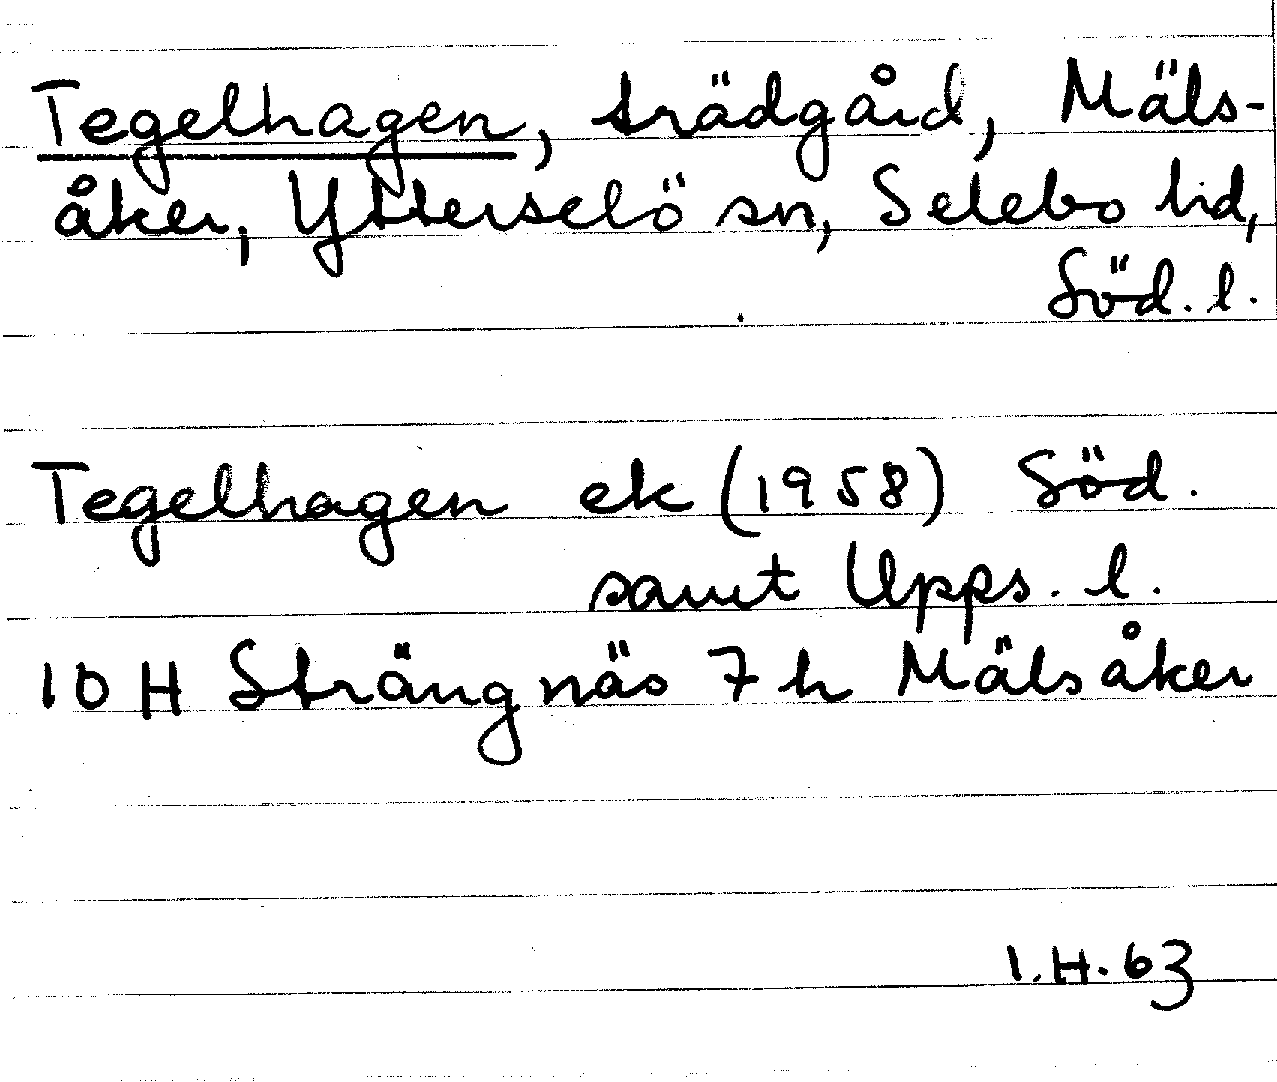 Tegelhagen, trädgård, Mäls-
åker, Ytterselö sn, Selebo hd,
Söd. l.
Tegelhagen ek (1958) Söd.
samt Upps. l.
10 H Strängnäs 7 h Mälsåker
I.H. 63